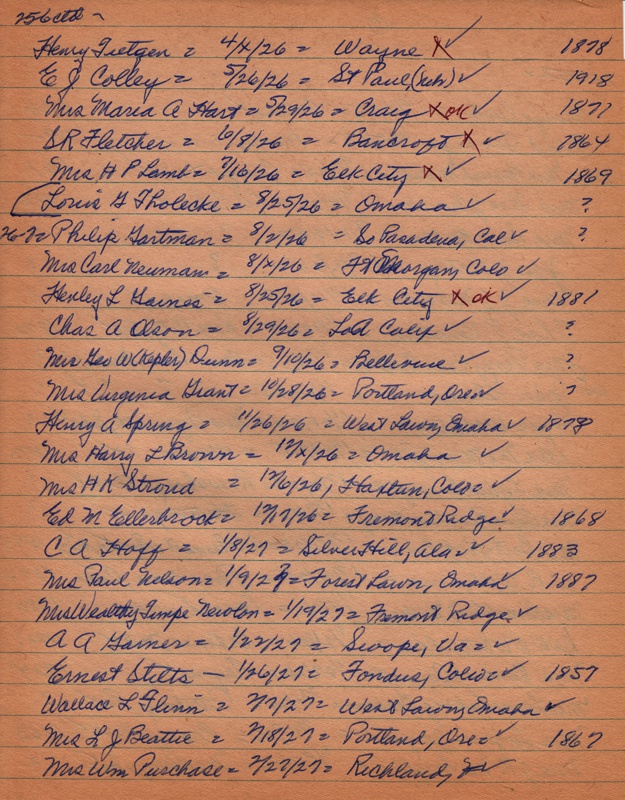 256 ctd -
Henry Tietgen = 4/x/26 = Wayne X ✓ 1878
E J Colley = 5/26/26 = St Paul, (Neb) ✓ 1918
Mrs Maria A Hart = 5/29/26 = Craig X OK ✓ 1871
S R Fletcher = 6/8/26 = Bancroft X ✓ 1864
Mrs H P Lamb = 7/16/26 = Elk City X ✓ 1869
Louis G Tholecke = 8/25/26 = Omaha ✓ ?
26-7 = Philip Gartman = 8/2/26 = So Pasadena, Cal ✓ ?
Mrs Carl Neumann = 8/x/26 = Ft Morgan, Colo ✓
Henley L Gaines = 8/25/26 = Elk City X OK ✓ 1881
Chas A Olson = 8/29/26 = Calif ✓ ?
Mrs Geo W (Kepler) Dunn = 9/10/26 = Bellevue ✓ ?
Mrs Virginia Grant = 10/28/26 = Portland, Ore ✓ ?
Henry A Spring = 11/26/26 = West Lawn, Omaha ✓ 1878
Mrs Harry L Brown = 12/x/26 = Omaha ✓
Mrs H K Stroud = 12/6/26, Haxtun, Colo = ✓
Ed M Ellerbrock = 12/17/26 = Fremont Ridge ✓ 1868
C A Hoff = 1/8/27 = Silver Hill, Ala ✓ 1883
Mrs Paul Nelson = 1/9/27 = Forest Lawn, Omaha 1887
Mrs Wealthy Timpe Newlon = 1/19/27 = Fremont Ridge ✓
A A Garner = 1/22/27 = Swoope, Va = ✓
Ernest Stilts — 1/26/27 = Fondus, Colo = ✓ 1857
Wallace L Flinn = 2/7/27 = West Lawn, Omaha ✓
Mrs L J Beattie = 2/18/27 = Portland, Ore = ✓ 1867
Mrs Wm Purchase = 2/27/27 = Richland, ✓